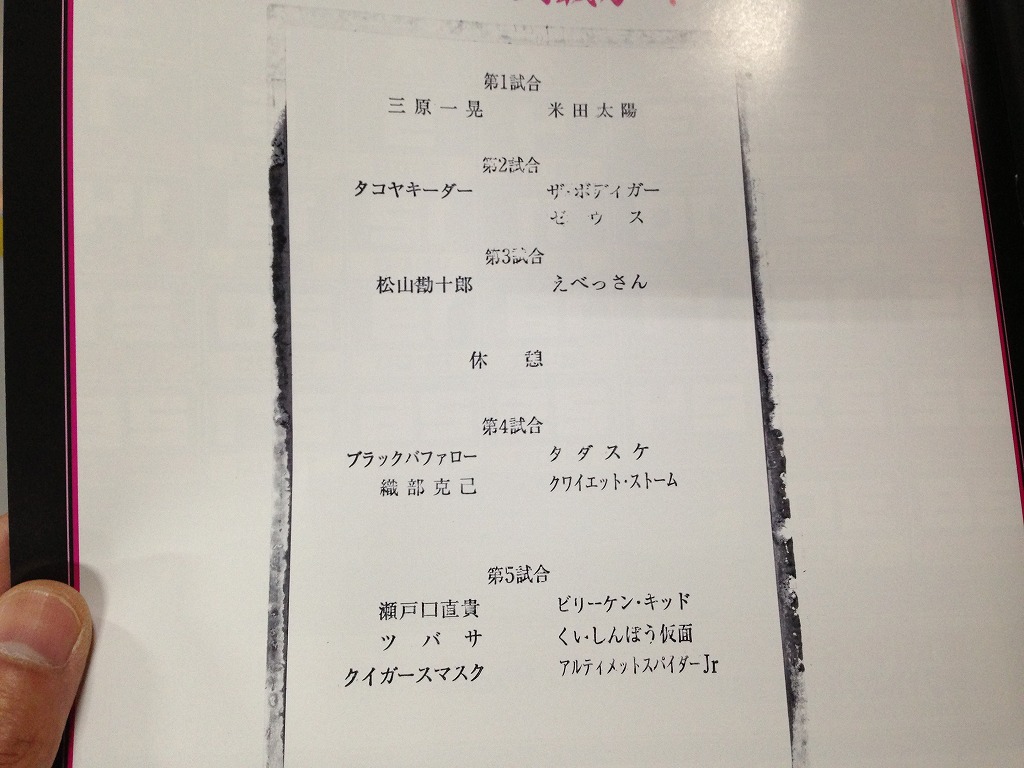 第1試合
三原一晃 米田太陽
第2試合
タコヤキーダー ザ・ボディガー
ゼウス
第3試合
松山勘十郎 えべっさん
休憩
第4試合
ブラックバファロー タダスケ
織部克己 クワイエット・ストーム
第5試合
瀬戸口直貴 ビリーケン・キッド
ツバサ くいしんぼう仮面
クイガースマスク アルティメットスパイダーJr